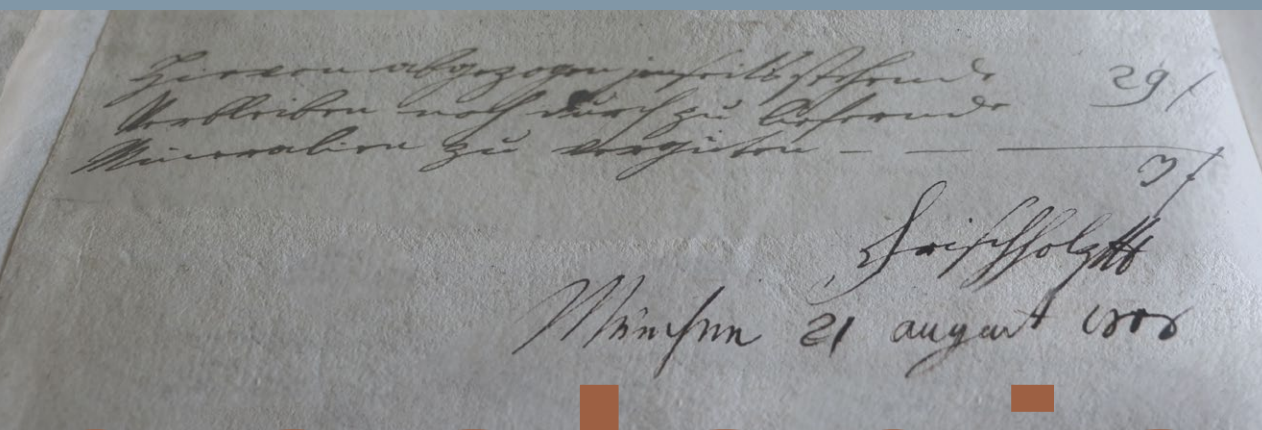 Hievon abgezogen jenseits stehende 29 /
Verbleiben noch durch zu liefernde
Mineralien zu vergüten — — —
3 /
Frischholz
München 21 august 1808